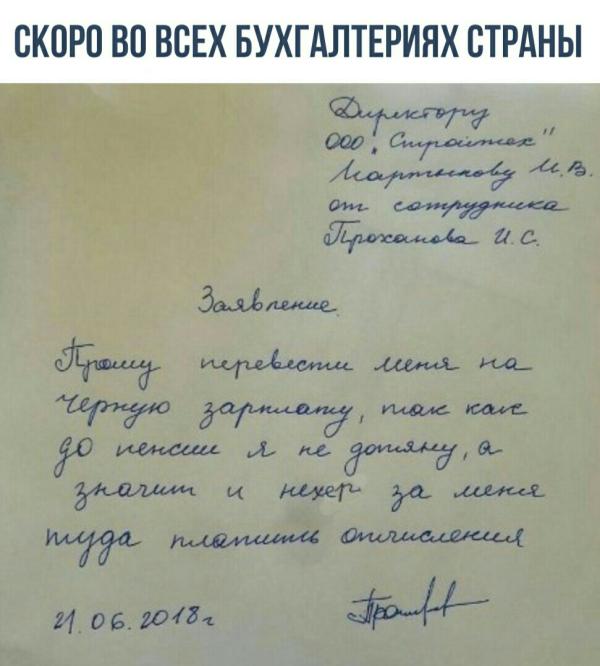 СКОРО ВО ВСЕХ БУХГАЛТЕРИЯХ СТРАНЫ
Директору
ООО „Стройтех"
Мартынову И.В.
от сотрудника
Проханова И.С.
Заявление.
Прошу перевести меня на
чёрную зарплату, так как
до пенсии я не дотяну, а
значит и нехер за меня
туда платить отчисления
21.06.2018г